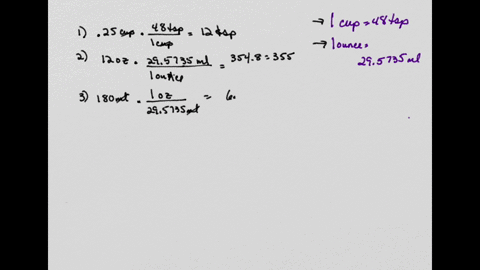 1) .25 cup · 48 tsp / 1 cup = 12 tsp
2) 12 oz · 29.5735 ml / 1 ounce = 354.8 = 355
3) 180 ml · 1 oz / 29.5735 ml = 6.
→ 1 cup = 48 tsp
→ 1 ounce =
29.5735 ml